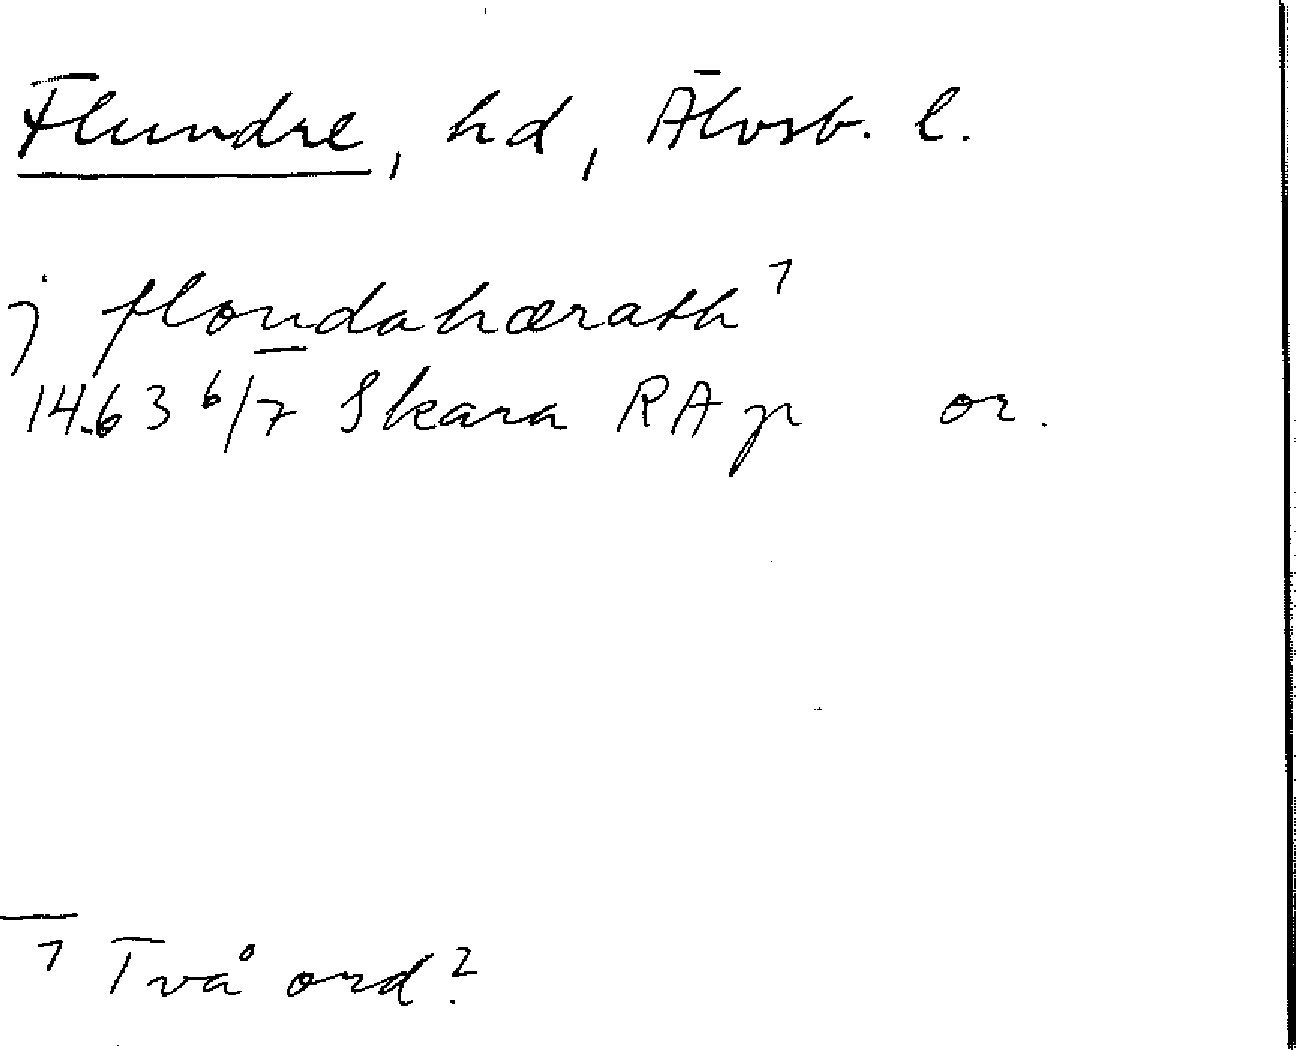 Flundre, hd, Älvsb. l.
j flondahærath 1
1463 6/7 Skara RAp or.
1 Två ord?